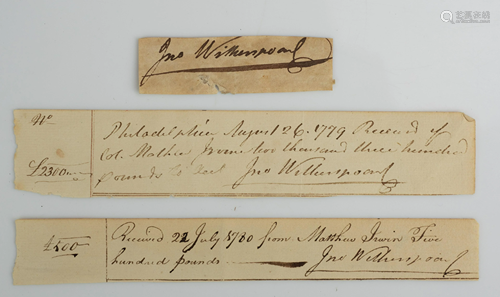 Jno Witherspoon
Philadelphia August 26. 1779 Received of
£2300 Col. Mathew two thousand three hundred
pounds Jno Witherspoon
£500 Received 22 July 1780 from Matthew Irwin Five
hundred pounds Jno Witherspoon